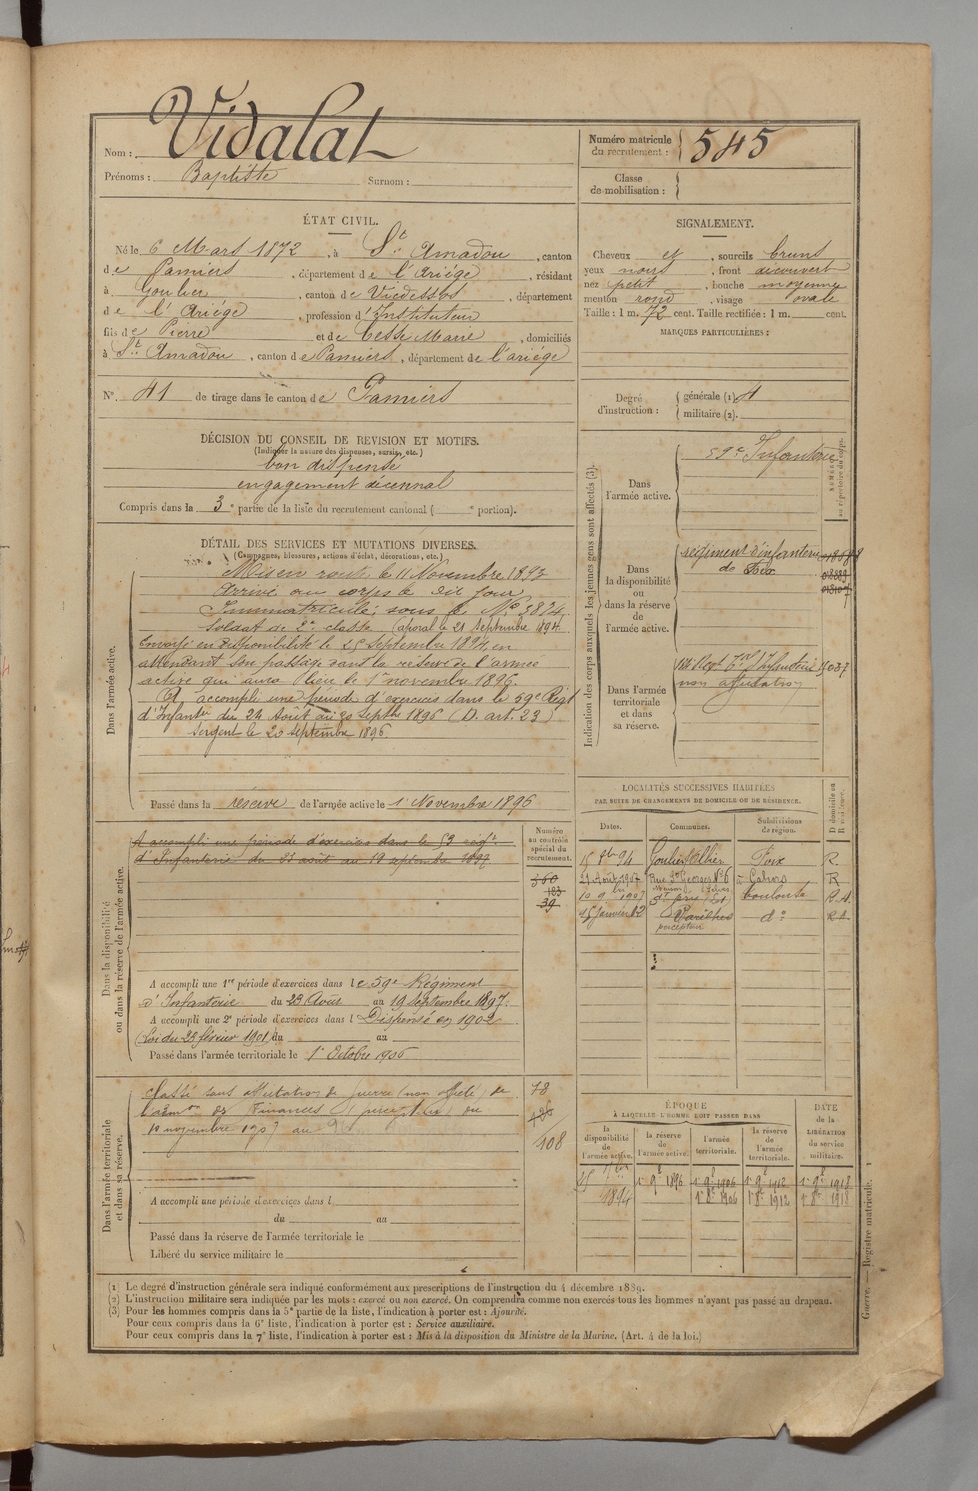 Nom : Vidalat
Prénoms : Baptiste Surnom :
Numéro matricule du recrutement : 545
Classe de mobilisation :
ÉTAT CIVIL.
Né le 6 Mars 1872, à St Amadou, canton
de Pamiers, département de l'Ariége, résidant
à Goulier, canton de Vicdessos, département
de l'Ariége, profession d'Instituteur
fils de Pierre et de Cesse Marie, domiciliés
à St Amadou, canton de Pamiers, département de l'ariége
N°. 41 de tirage dans le canton de Pamiers
SIGNALEMENT.
Cheveux et, sourcils bruns
yeux noirs, front découvert
nez petit, bouche moyenne
menton rond, visage ovale
Taille : 1 m. 72 cent. Taille rectifiée : 1 m. cent.
MARQUES PARTICULIÈRES :
Degré d'instruction : générale (1). 4
militaire (2).
DÉCISION DU CONSEIL DE REVISION ET MOTIFS.
(Indiquer la nature des dispenses, sursis, etc.)
bon dispensé
engagement décennal
Compris dans la 3e partie de la liste du recrutement cantonal ( e portion).
DÉTAIL DES SERVICES ET MUTATIONS DIVERSES.
(Campagnes, blessures, actions d'éclat, décorations, etc.)
Dans l'armée active.
Mis en route le 11 Novembre 1893
Arrivé au corps le dit jour
Immatriculé sous le No 3874
Soldat de 2e classe Caporal le 21 Septembre 1894
Envoyé en disponibilité le 25 septembre 1894, en
attendant son passage dans la réserve de l'armée
active qui aura lieu le 1er novembre 1896.
A accompli une période d'exercices dans le 59e Régt
d'Infantie du 24 Août au 20 septbre 1896 (D. art. 23)
Sergent le 20 septembre 1896
Passé dans la réserve de l'armée active le 1er Novembre 1896
Indication des corps auxquels les jeunes gens sont affectés (3).
NUMÉRO au répertoire du corps.
Dans l'armée active.
59e Infanterie
Dans la disponibilité ou dans la réserve de l'armée active.
régiment d'infanterie
de Foix
Dans l'armée territoriale et dans sa réserve.
non affectation
LOCALITÉS SUCCESSIVES HABITÉES
PAR SUITE DE CHANGEMENTS DE DOMICILE OU DE RÉSIDENCE.
Dates. Communes. Subdivisions de région. D domicile ou R résidence.
15 8bre 94 Foix R.
21 Août 1907 Rue St Georges No 6 à Cahors R
Toulouse R.A.
15 Janvier 12 do R.A.
percepteur
Dans la disponibilité ou dans la réserve de l'armée active.
Numéro au contrôle spécial du recrutement.
A accompli une période d'exercices dans le 59 régt
d'Infanterie du 23 août au 19 septembre 1897
360
183
39
A accompli une 1re période d'exercices dans le 59e Régiment
d'Infanterie du 23 Août au 19 septembre 1897.
A accompli une 2e période d'exercices dans l Dispensé en 1902
(Loi du 23 février 1901) du au
Passé dans l'armée territoriale le 1er Octobre 1906
Dans l'armée territoriale et dans sa réserve.
Classé sans affectation de guerre (non affecté) de
l'admon des Finances (percepteur) du
10 novembre 1907 au
78
108
A accompli une période d'exercices dans l
du au
Passé dans la réserve de l'armée territoriale le
Libéré du service militaire le
ÉPOQUE
À LAQUELLE L'HOMME DOIT PASSER DANS
la disponibilité de l'armée active. la réserve de l'armée active. l'armée territoriale. la réserve de l'armée territoriale.
DATE de la LIBÉRATION du service militaire.
25 1894 1er 9bre 1896 1er 9bre 1906 1er 9bre 1912 1er 9bre 1918
1er 8bre 1906 1er 8bre 1912 1er 8bre 1918
(1) Le degré d'instruction générale sera indiqué conformément aux prescriptions de l'instruction du 4 décembre 1889.
(2) L'instruction militaire sera indiquée par les mots : exercé ou non exercé. On comprendra comme non exercés tous les hommes n'ayant pas passé au drapeau.
(3) Pour les hommes compris dans la 5e partie de la liste, l'indication à porter est : Ajourité.
Pour ceux compris dans la 6e liste, l'indication à porter est : Service auxiliaire.
Pour ceux compris dans la 7e liste, l'indication à porter est : Mis à la disposition du Ministre de la Marine. (Art. 4 de la loi.)
Guerre. — Registre matricule.